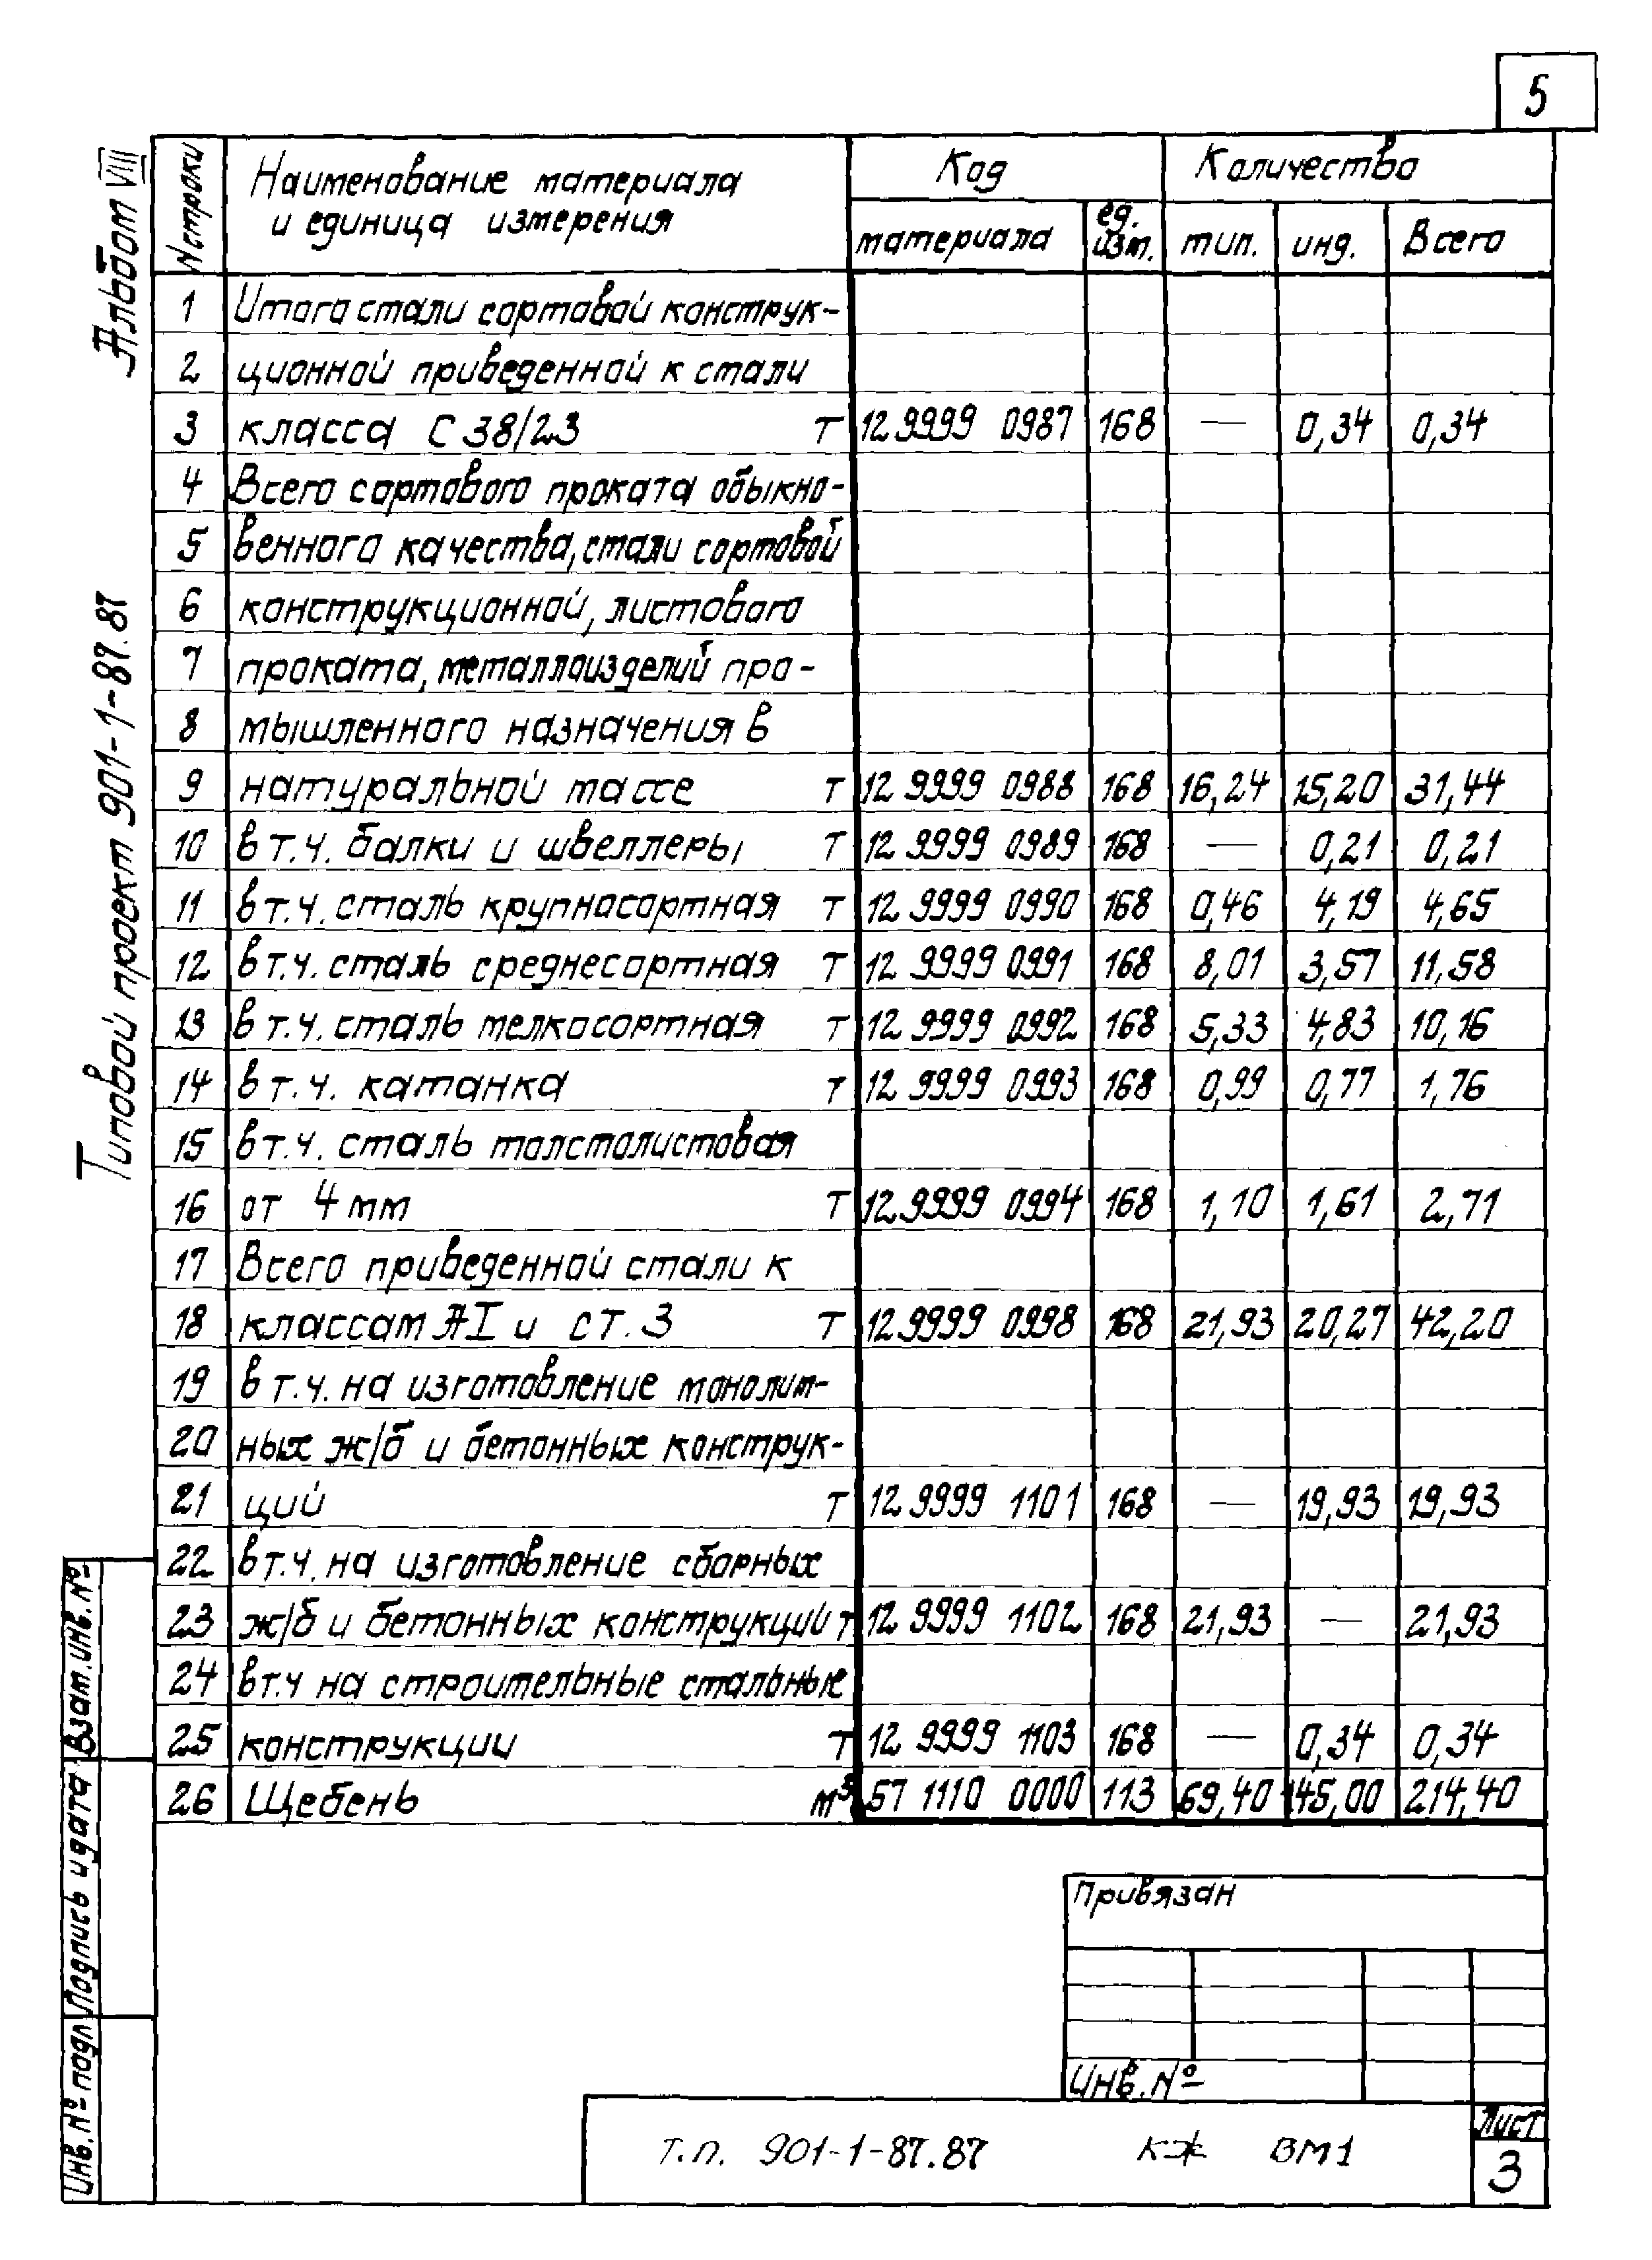 5
Альбом VIII
Типовой проект 901-1-87.87
N строки
Наименование материала
и единица измерения
Код
Количество
материала
ед.
изм.
тип.
инд.
Всего
1 Итого стали сортовой конструк-
2 ционной приведенной к стали
3 класса С 38/23 т 12 9999 0987 168 — 0,34 0,34
4 Всего сортового проката обыкно-
5 венного качества, стали сортовой
6 конструкционной, листового
7 проката, металлоизделий про-
8 мышленного назначения в
9 натуральной массе т 12 9999 0988 168 16,24 15,20 31,44
10 в т.ч. балки и швеллеры т 12 9999 0989 168 — 0,21 0,21
11 в т.ч. сталь крупносортная т 12 9999 0990 168 0,46 4,19 4,65
12 в т.ч. сталь среднесортная т 12 9999 0991 168 8,01 3,57 11,58
13 в т.ч. сталь мелкосортная т 12 9999 0992 168 5,33 4,83 10,16
14 в т.ч. катанка т 12 9999 0993 168 0,99 0,77 1,76
15 в т.ч. сталь толстолистовая
16 от 4 мм т 12 9999 0994 168 1,10 1,61 2,71
17 Всего приведенной стали к
18 классам АI и ст. 3 т 12 9999 0998 168 21,93 20,27 42,20
19 в т.ч. на изготовление монолит-
20 ных ж/б и бетонных конструк-
21 ций т 12 9999 1101 168 — 19,93 19,93
22 в т.ч. на изготовление сборных
23 ж/б и бетонных конструкций т 12 9999 1102 168 21,93 — 21,93
24 в т.ч на строительные стальные
25 конструкции т 12 9999 1103 168 — 0,34 0,34
26 Щебень м³ 57 1110 0000 113 69,40 145,00 214,40
Взам.инв.№
Подпись и дата
Инв.№ подл
Привязан
Инв.№
Т.п. 901-1-87.87 КЖ ВМ1
Лист
3